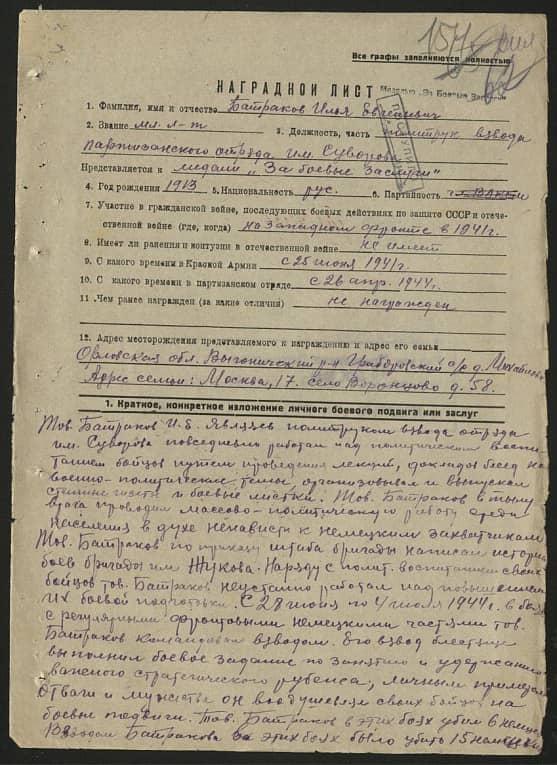 Все графы заполняются полностью
НАГРАДНОЙ ЛИСТ Медалью „За Боевые Заслуги
1. Фамилия, имя и отчество Батраков Илья
2. Звание мл. л-т 3. Должность, часть политрук взвода
партизанского отряда им. Суворова
Представляется к медали „За боевые заслуги"
4. Год рождения 1913 5. Национальность рус. 6. Партийность
7. Участие в гражданской войне, последующих боевых действиях по защите СССР и отече-
ственной войне (где, когда) на Западном фронте в 1941 г.
8. Имеет ли ранения и контузии в отечественной войне не имеет
9. С какого времени в Красной Армии с 25 июня 1941 г.
10. С какого времени в партизанском отряде с 26 апр. 1944 г.
11. Чем ранее награжден (за какие отличия) не награжден
12. Адрес месторождения представляемого к награждению и адрес его семьи
Орловская обл. Выгоничский р-н с/с д.
Адрес семьи: Москва, 17. село Воронцово д. 58.
1. Краткое, конкретное изложение личного боевого подвига или заслуг
Тов. Батраков И.Е. Являясь политруком взвода отряда
им. Суворова повседневно работал над политическим воспи-
танием бойцов путем проведения лекций, докладов бесед на
военно-политические темы, организовывал и выпускал
стенные газеты и боевые листки. Тов. Батраков в тылу
врага проводил массово-политическую работу среди
населения в духе ненависти к немецким захватчикам
Тов. Батраков по приказу штаба бригады написал историю
боев бригады им. Жукова. Наряду с полит. воспитанием своих
бойцов тов. Батраков неустанно работал над повышением
их боевой подготовки. С 28 июня по 4 июля 1944 г. в боях
с регулярными фронтовыми немецкими частями тов.
Батраков командовал взводом. Его взвод блестяще
выполнил боевое задание по занятию и удержанию
важного стратегического рубежа, личным примером
отваги и мужества он воодушевлял своих бойцов на
боевые подвиги. Тов. Батраков в этих боях убил 6 немцев
Взводом Батракова за этих боях было убито 15 немцев